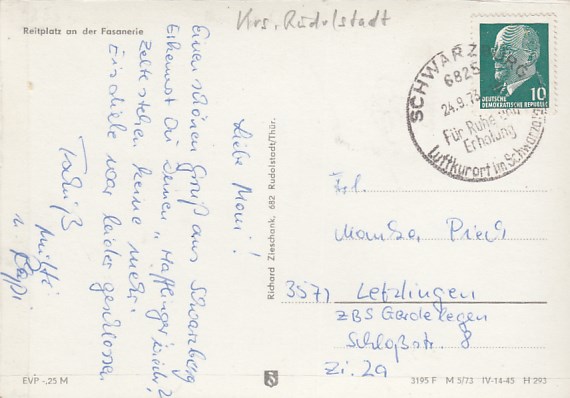 Krs. Rudolstadt
Reitplatz an der Fasanerie
Liebe Moni!
Einen schönen Gruß aus Schwarzburg
Erkennst Du Deinen "Haflinger wieder?
Zelte stehen keine mehr.
Eisdiele war leider geschlossen
Tschüß
Mutti
u. Pappi
Richard Zieschank, 682 Rudolstadt/Thür.
SCHWARZBURG
6825
24.9.73
Für Ruhe und
Erholung
Luftkurort im Schwarzatal
10
DEUTSCHE
DEMOKRATISCHE REPUBLIK
Frl.
Monika
3571 Letzlingen
ZBS Gardelegen
Schloßstr. 8
Zi. 2a
EVP -,25 M
3195 F M 5/73 IV-14-45 H 293